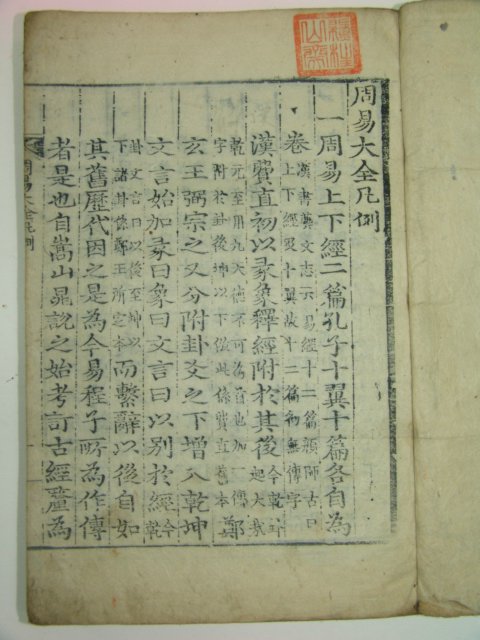 周易大全凡例
一周易上下經二篇孔子十翼十篇各自為
卷漢書藝文志云易經十二篇顔師古曰上下經及十翼故十二篇初無傳字
漢費直初以彖象釋經附於其後今乾卦起大哉
乾元至用九天德不可為首也加一傳字附於卦後坤以下倣此係費直舊本鄭
玄王弼宗之又分附卦爻之下增入乾坤
文言始加彖曰象曰文言曰以別於經今乾
卦文言曰以後至坤以下諸卦係鄭王所定本而繫辭以後自如
其舊歷代因之是為今易程子所為作傳
者是也自嵩山晁說之始考訂古經釐為
周易大全凡例